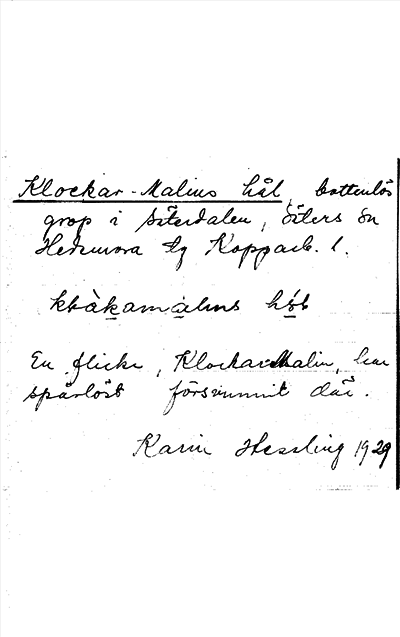 Klockar-Malins hål, bottenlös
grop i Säterdalen, Säters sn
Hedemora tg Kopparb. l.
En flicka, Klockar Malin, har
spårlöst försvunnit där.
Karin Hessling 1929